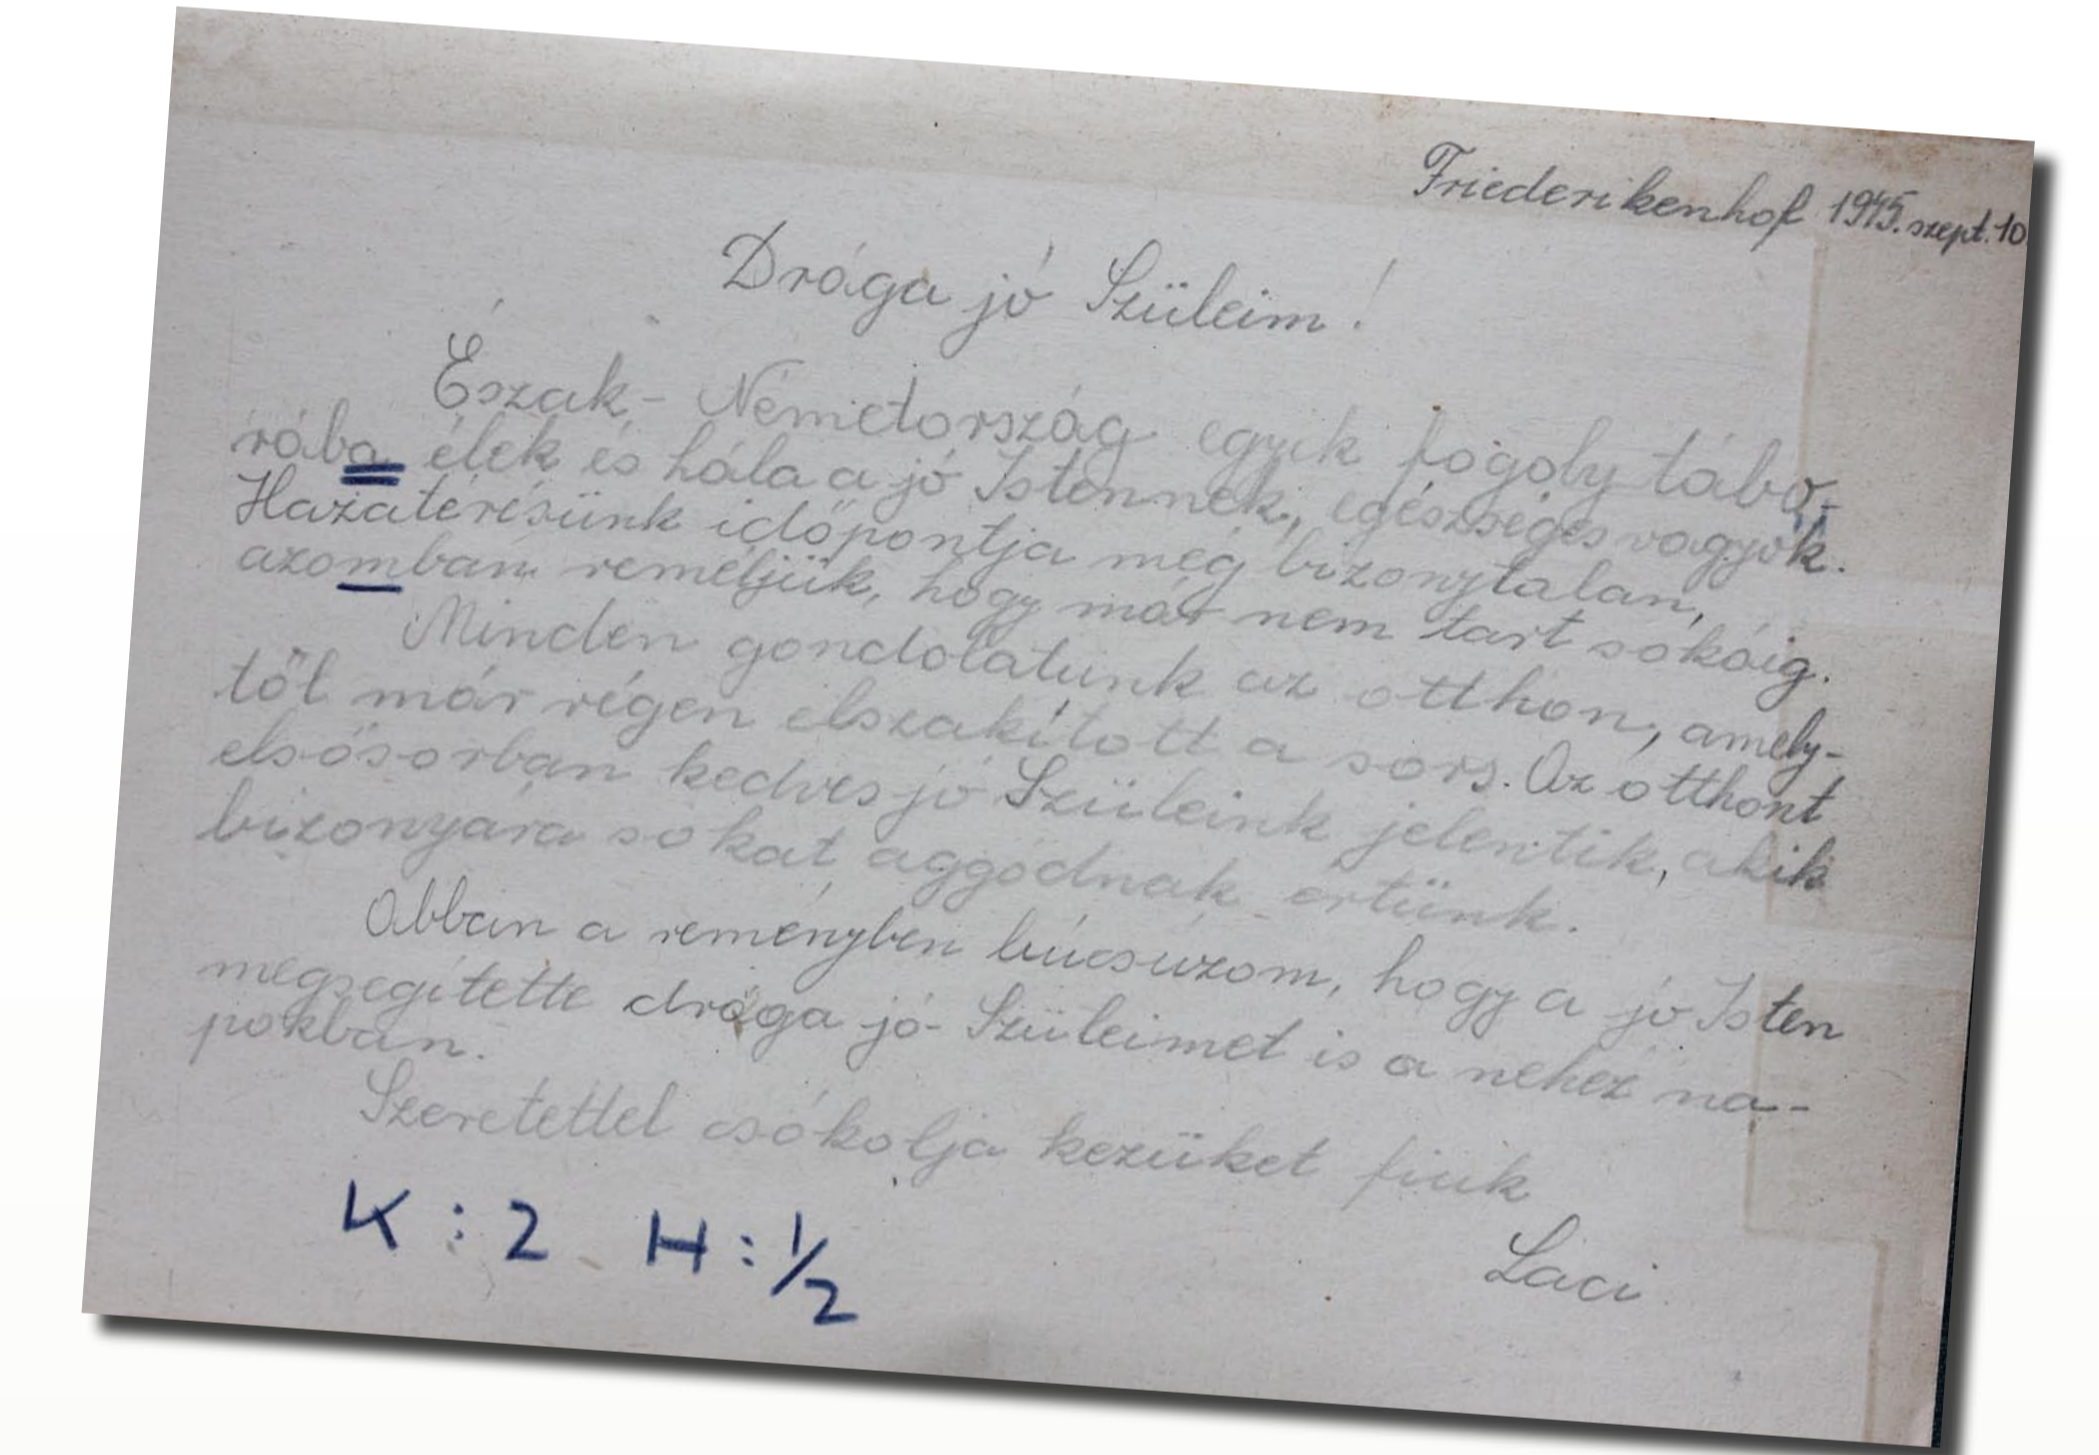 Friederikenhof 1945. szept. 10
Drága jó Szüleim!
Észak-Németország egyik fogoly tábo-
rába élek és hála a jó Istennek, egészséges vagyok.
Hazatérésünk időpontja még bizonytalan,
azomban reméljük, hogy már nem tart sokáig.
Minden gondolatunk az otthon, amely-
től már régen elszakított a sors. Az otthont
elsősorban kedves jó Szüleink jelentik, akik
bizonyára sokat aggódnak értünk.
Abban a reményben búcsúzom, hogy a jó Isten
megsegítette drága jó Szüleimet is a nehéz na-
pokban.
Szeretettel csókolja kezüket fiuk
Laci
K : 2 H : 1/2